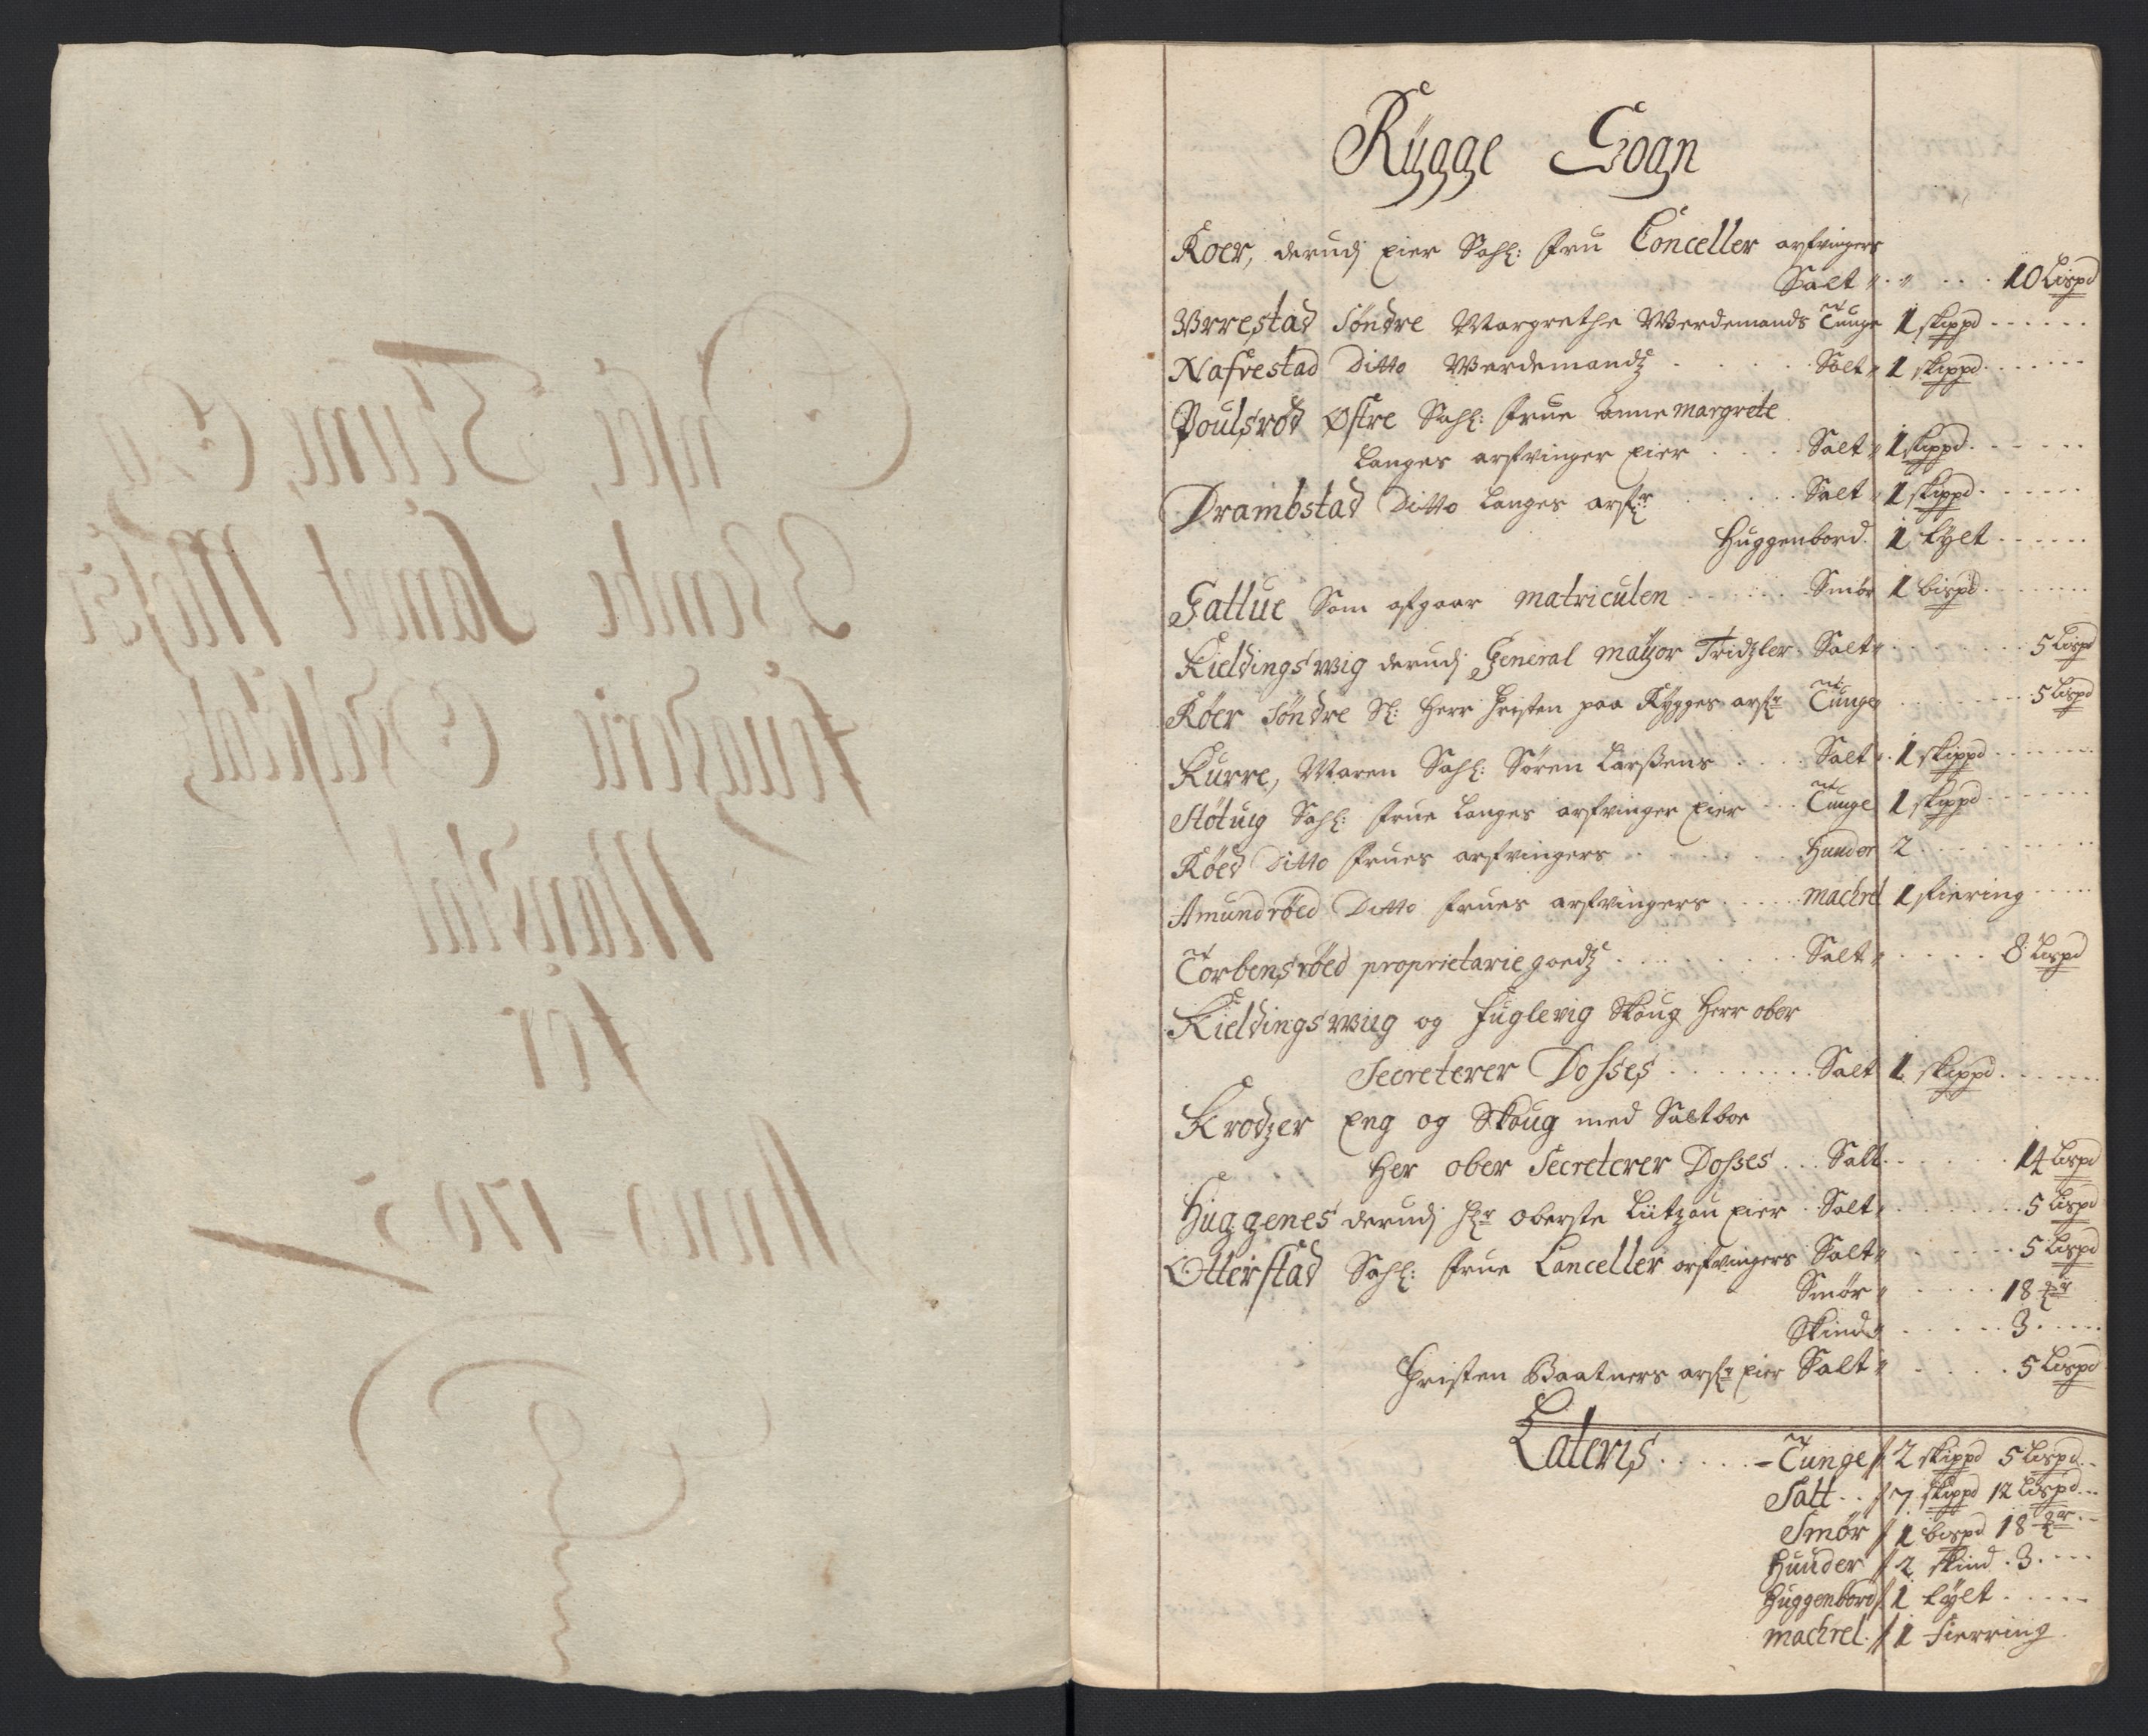 Rÿgge Sogn
Roer, derudj Eier Sahl: fru Conceller arfvingers
Salt " " 10 Lispd
Wrrestad Søndre Margrethe Werdemands Tunge 1 skippd
Nafvestad Ditto Werdemandz Salt " 1 skippd
Poulsrød Østre Sahl: frue Anne Margrete
Langes arfvinger Eier Salt " 1 skippd
Drambstad Ditto Langes arf:r Salt " 1 skippd
Huggenbord. 1 tylt
Gatlue Som afgaar matriculen Smør 1 bispd
Kieldingswig derudj General mayor Tridzler Salt " 5 Lispd
Røer Søndre Sl: Herr Christen paa Rygges arfr Tunge 5 Lispd
Kurre, Maren Sahl: Søren Larssens Salt " 1 skippd
Støtuig Sahl: frue Langes arfvinger Eier Tunge 1 skippd
Røed Ditto frues arfvingers Huuder 2
Amundrøed Ditto frues arfvingers machrel 1 fiering
Torbensrøed proprietarie goedz Salt " 8 Lispd
Kieldingswiig og fuglevig Skoug Herr ober
Secreterer Dosses Salt 1 skippd
Krodzer Eng og Skoug med Saltboe
Her ober Secreterer Dosses Salt 14 Lispd
Huggenes derudj hr oberste Lützou Eier Salt " 5 Lispd
Otterstad Sahl: frue Canceller arfvingers Salt " 5 Lispd
Smør " 18
Skind " 3
Christen Baatners arfr Eier Salt " 5 Lispd
Lateris Tunge / 2 skippd 5 Lispd
Salt / 7 skippd 12 Lispd
Smør / 1 bispd 18
Huuder / 2 skind 3
Huggenbord / 1 tylt
machrel / 1 fierring